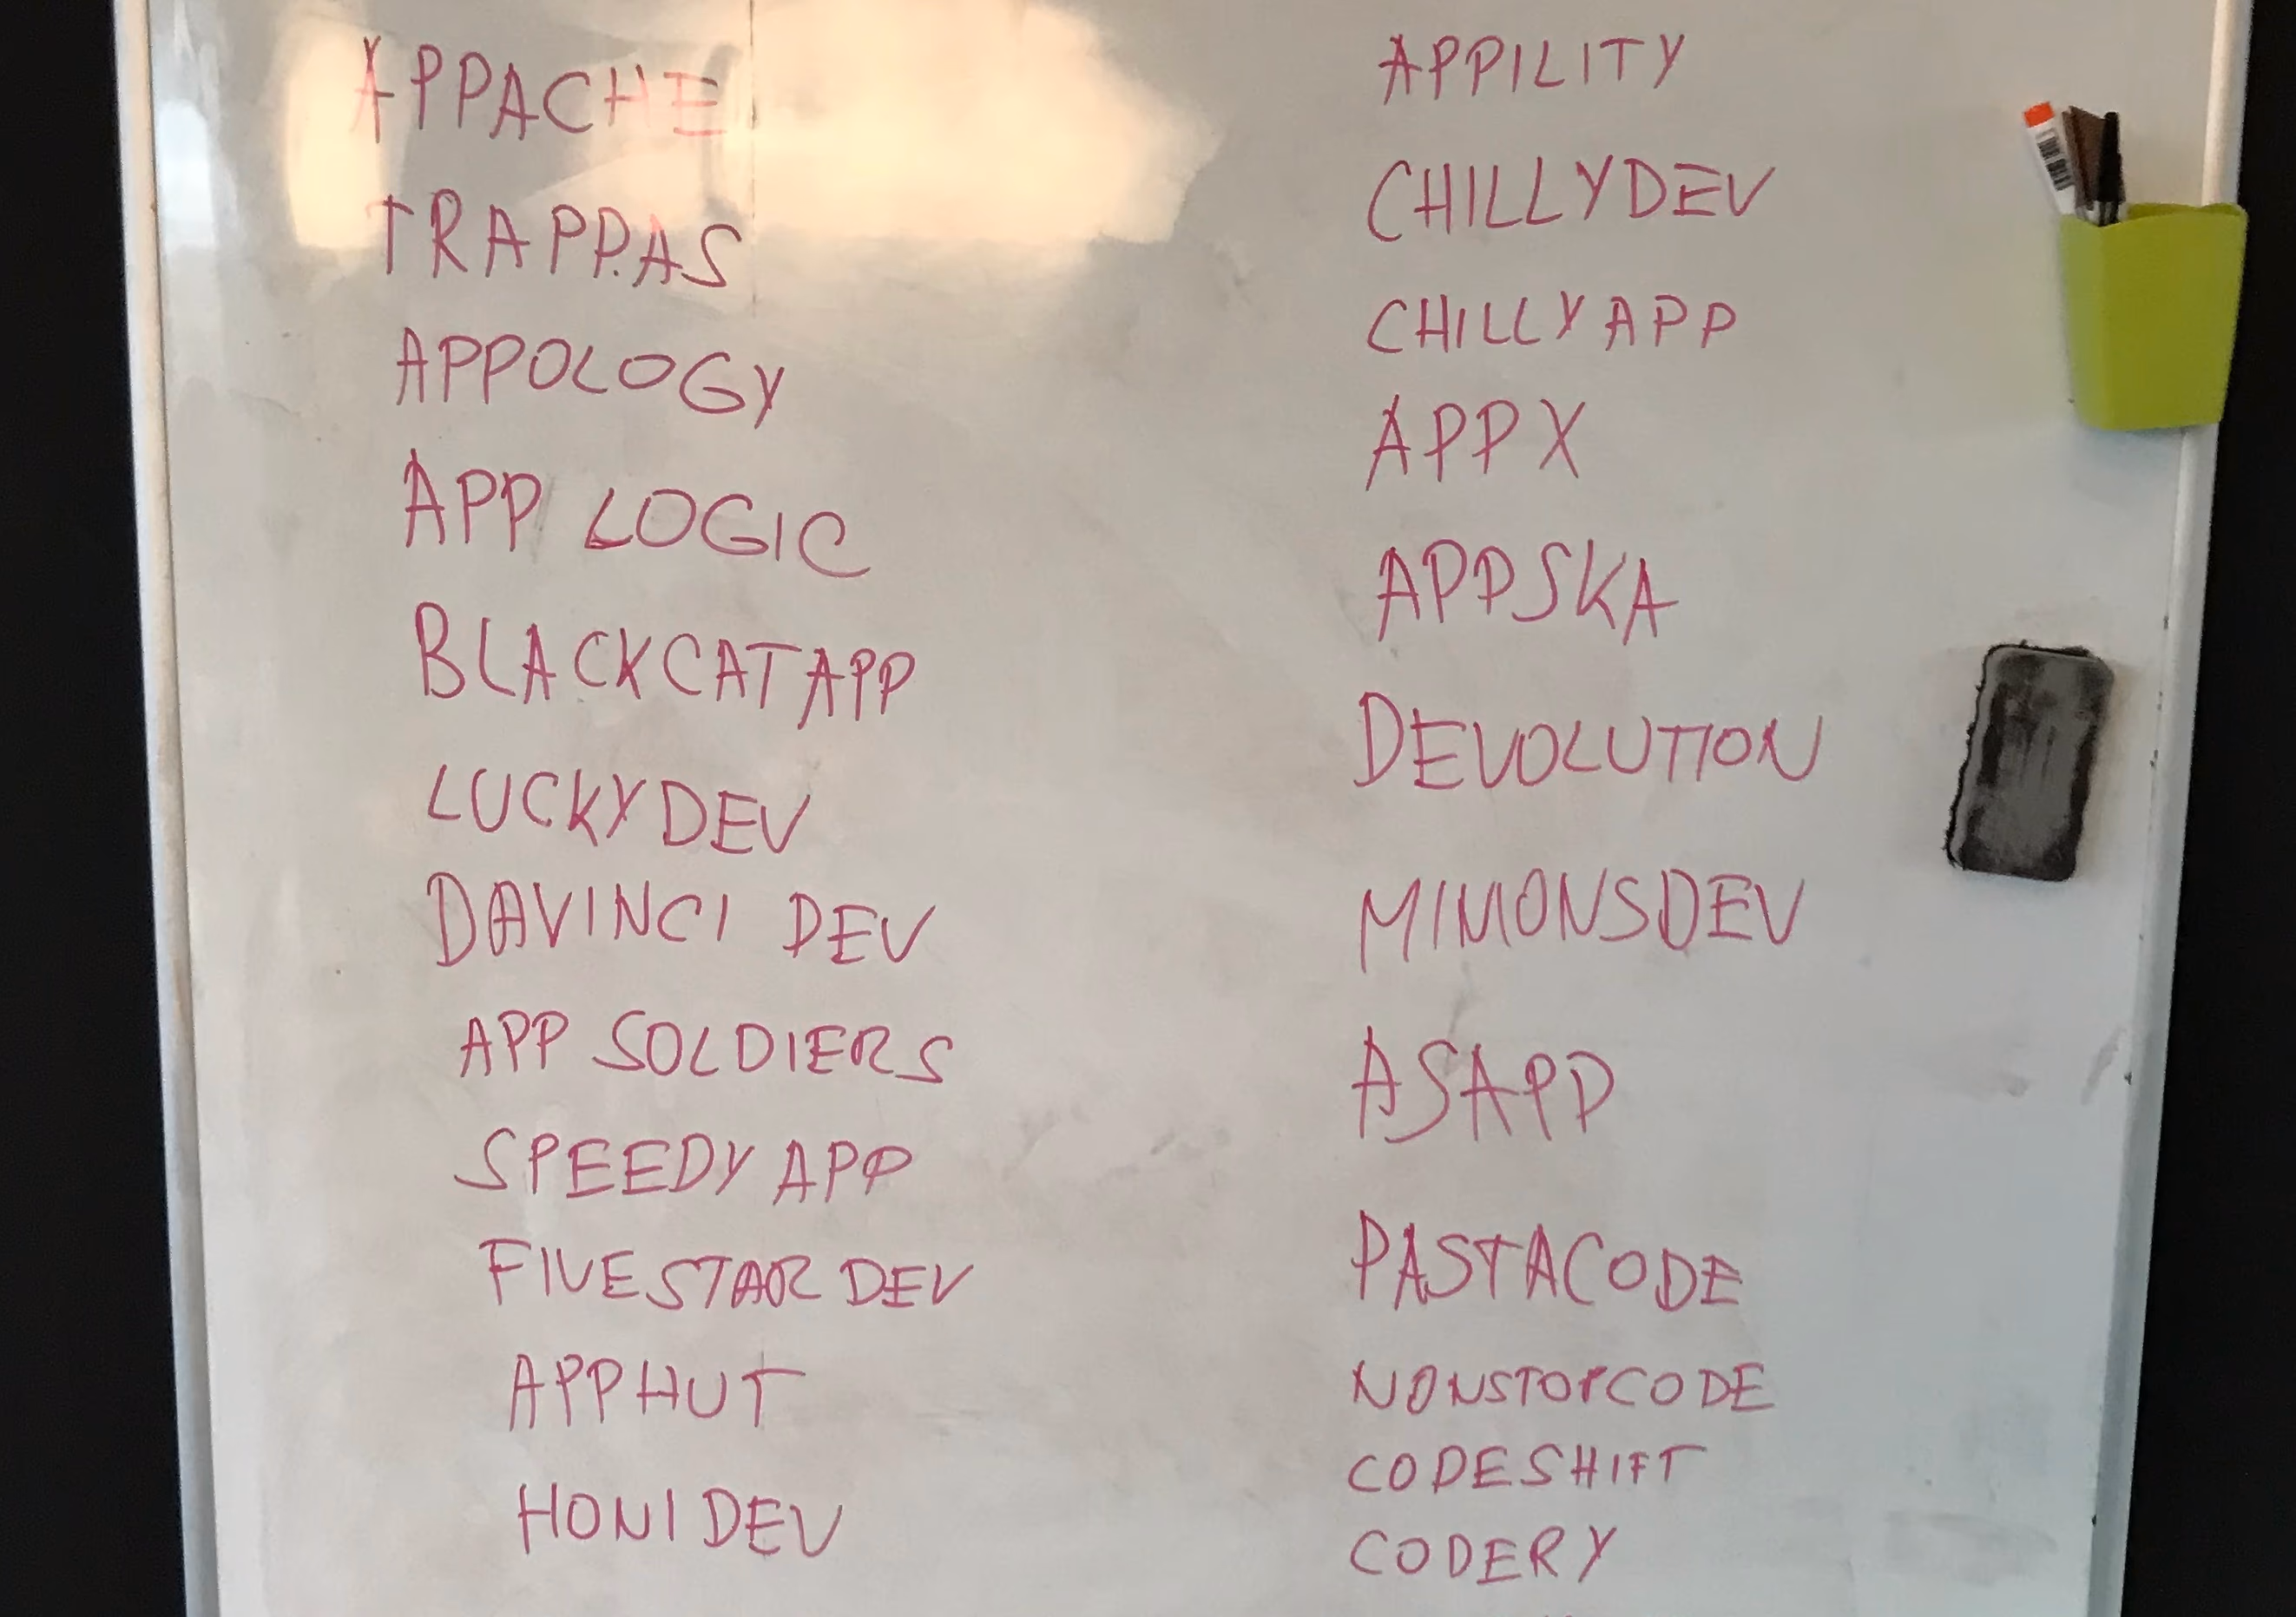 APPACHE
TRAPPAS
APPOLOGY
APP LOGIC
BLACKCATAPP
LUCKYDEV
DAVINCI DEV
APP SOLDIERS
SPEEDY APP
FIVESTAR DEV
APPHUT
HONI DEV
APPILITY
CHILLYDEV
CHILLYAPP
APPX
APPSKA
DEVOLUTION
MINIONSDEV
ASAPP
PASTACODE
NONSTOPCODE
CODESHIFT
CODERY